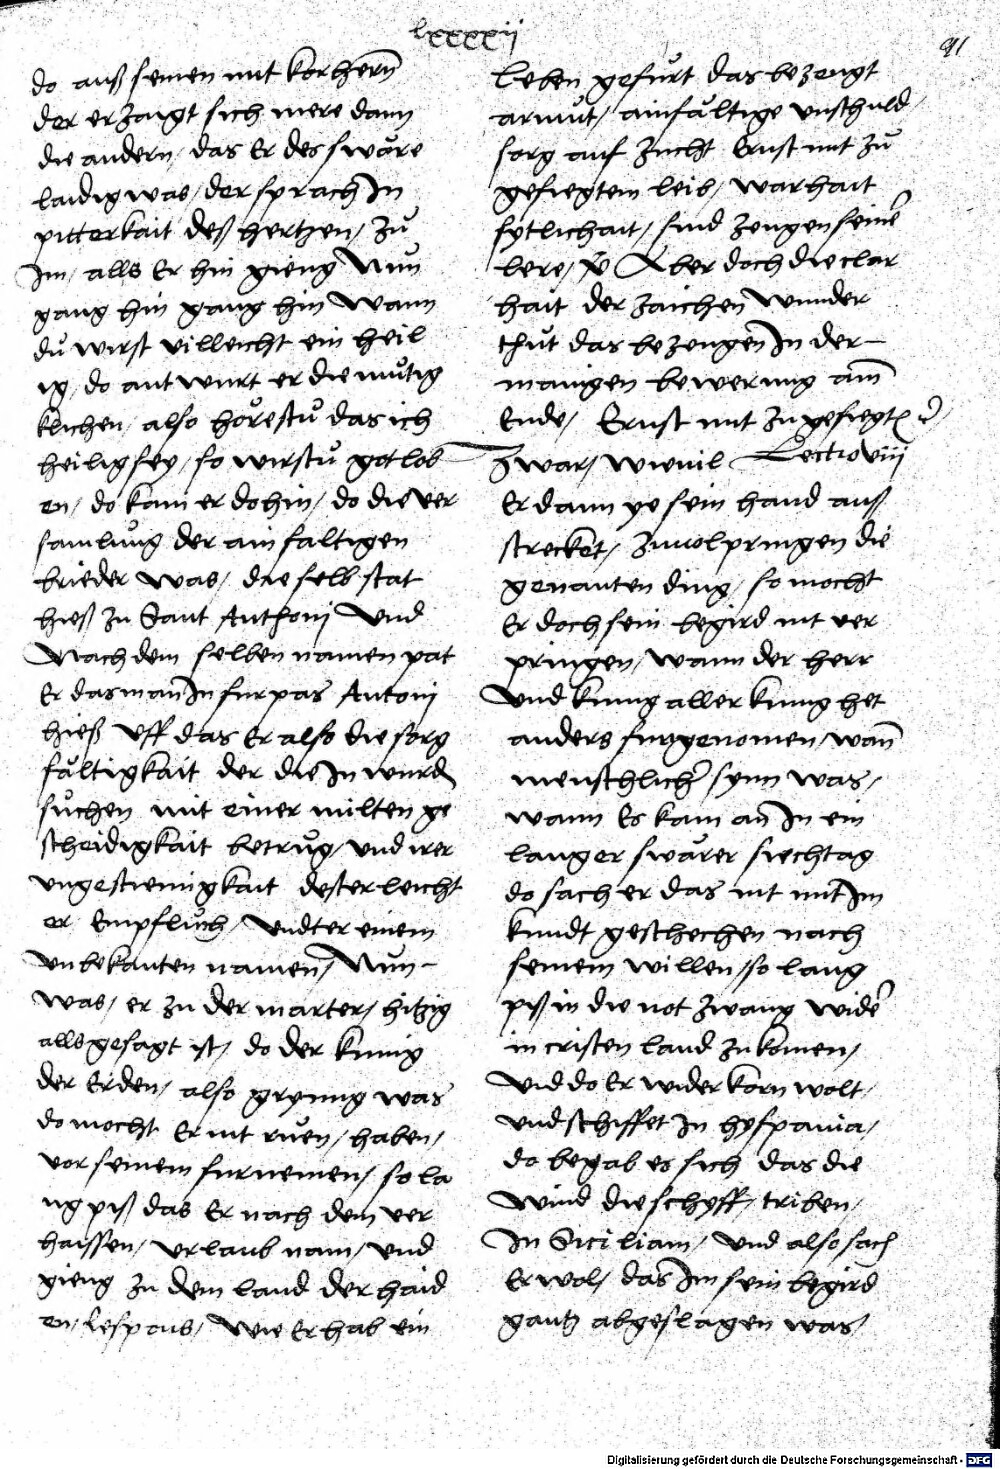 lxxxxij
91
do auß seinen mit korherrn
der erzaigt sich mere dann
die andern / das Er des swäre
laidig was / der sprach In
pitterkait deß hertzen / zů
Im / alls Er hin gieng Nun
gang hin gang hin Wann
du wirst villeicht ein heil
ig / do antwurt er diemůtig
klichen / also hőrestu das ich
heilig sey / so wirstu got lob
en / do kam er dohin / do die ver
samlung der ainfaltigen
brieder was / die selb stat
hieß zu Sant Anthonj Und
Nach dem selben namen pat
Er das man In furpas Antonj
hieß Uff das Er also die sorg
fältigkait der die In wurden
sůchen mit einer milten ge
scheidigkait betrůg / und irer
ungestiemigkait dester leicht
er Empfluch / Undter einem
unbekanten namen / Nun
was / er zu der marter / hitzig
alls gesagt ist / do der kunig
der Erden / also grymig was
do mocht Er nit růen / haben /
vor seinem furnemen / so la
ng piß das Er nach dem ver
haissen / urlaub nam / und
gieng zu dem land der haid
en / Respons / Wie Er hab ein
leben gefürt das bezeugt
armůt / ainfältige unschuld /
sorg auf zucht Ernst mit zů
gefiegtem leib / warhait
sytlichait / sind zeugen seiner
lere / Aber doch die clar
hait der zaichen Wunder
thůt das bezeugen In der
manigen bewerung am
Ende / Ernst mit zu gefiegt
Zwar / wievil Lectio viij
Er dann ye sein hand auß
strecket / zuuolpringen die
genanten ding / so mocht
Er doch sein begird nit ver
pringen / wann der herr
Und kunig aller kunig het
anders furgenomen / wann
menschlicher synn was /
wann Es kam an In ein
langer swärer siechtag
do sach er das nit mit Im
kundt geschechen nach
seinem willen / so lang
piß in die not zwang wider
in cristen land zu komen /
Und do Er wider korn wolt /
Und schiffet In hyspania /
do begab es sich das die
Wind die schyff / triben /
In Siciliam / Und also sach
Er wol / das Im sein begird
gantz abgeslagen was /
Digitalisierung gefördert durch die Deutsche Forschungsgemeinschaft - DFG